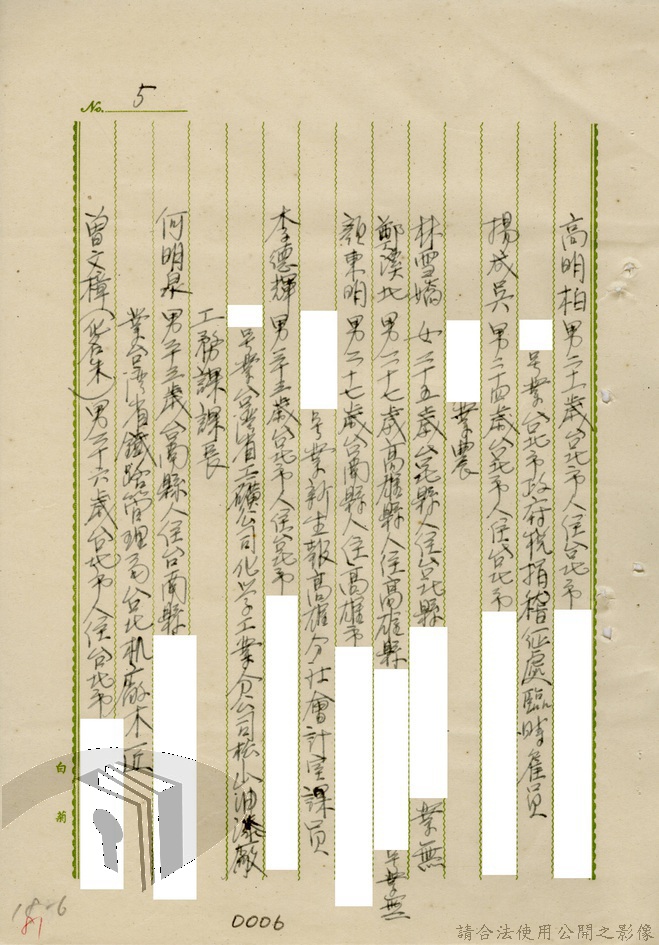 No. 5
高明柏 男二十一歲台北市人住台北市
号業台北市政府稅捐稽征處臨時雇員
楊成吳 男二十四歲台北市人住台北市
業農
林雪嬌 女二十五歲台北縣人住台北縣 業無
鄭溪北 男二十七歲高雄縣人住高雄縣 号業無
顏東明 男二十七歲台南縣人住高雄市
号業新生報高雄分社會計室課員
李德輝 男三十三歲台北市人住台北市
号業台灣省工礦公司化学工業分公司松山油漆廠
工務課課長
何明泉 男三十三歲台南縣人住台南縣
業台灣省鐵路管理局台北机廠木匠
曾文樟(化名朱)男二十六歲台北市人住台北市
白菊
18-6
81
0006
請合法使用公開之影像